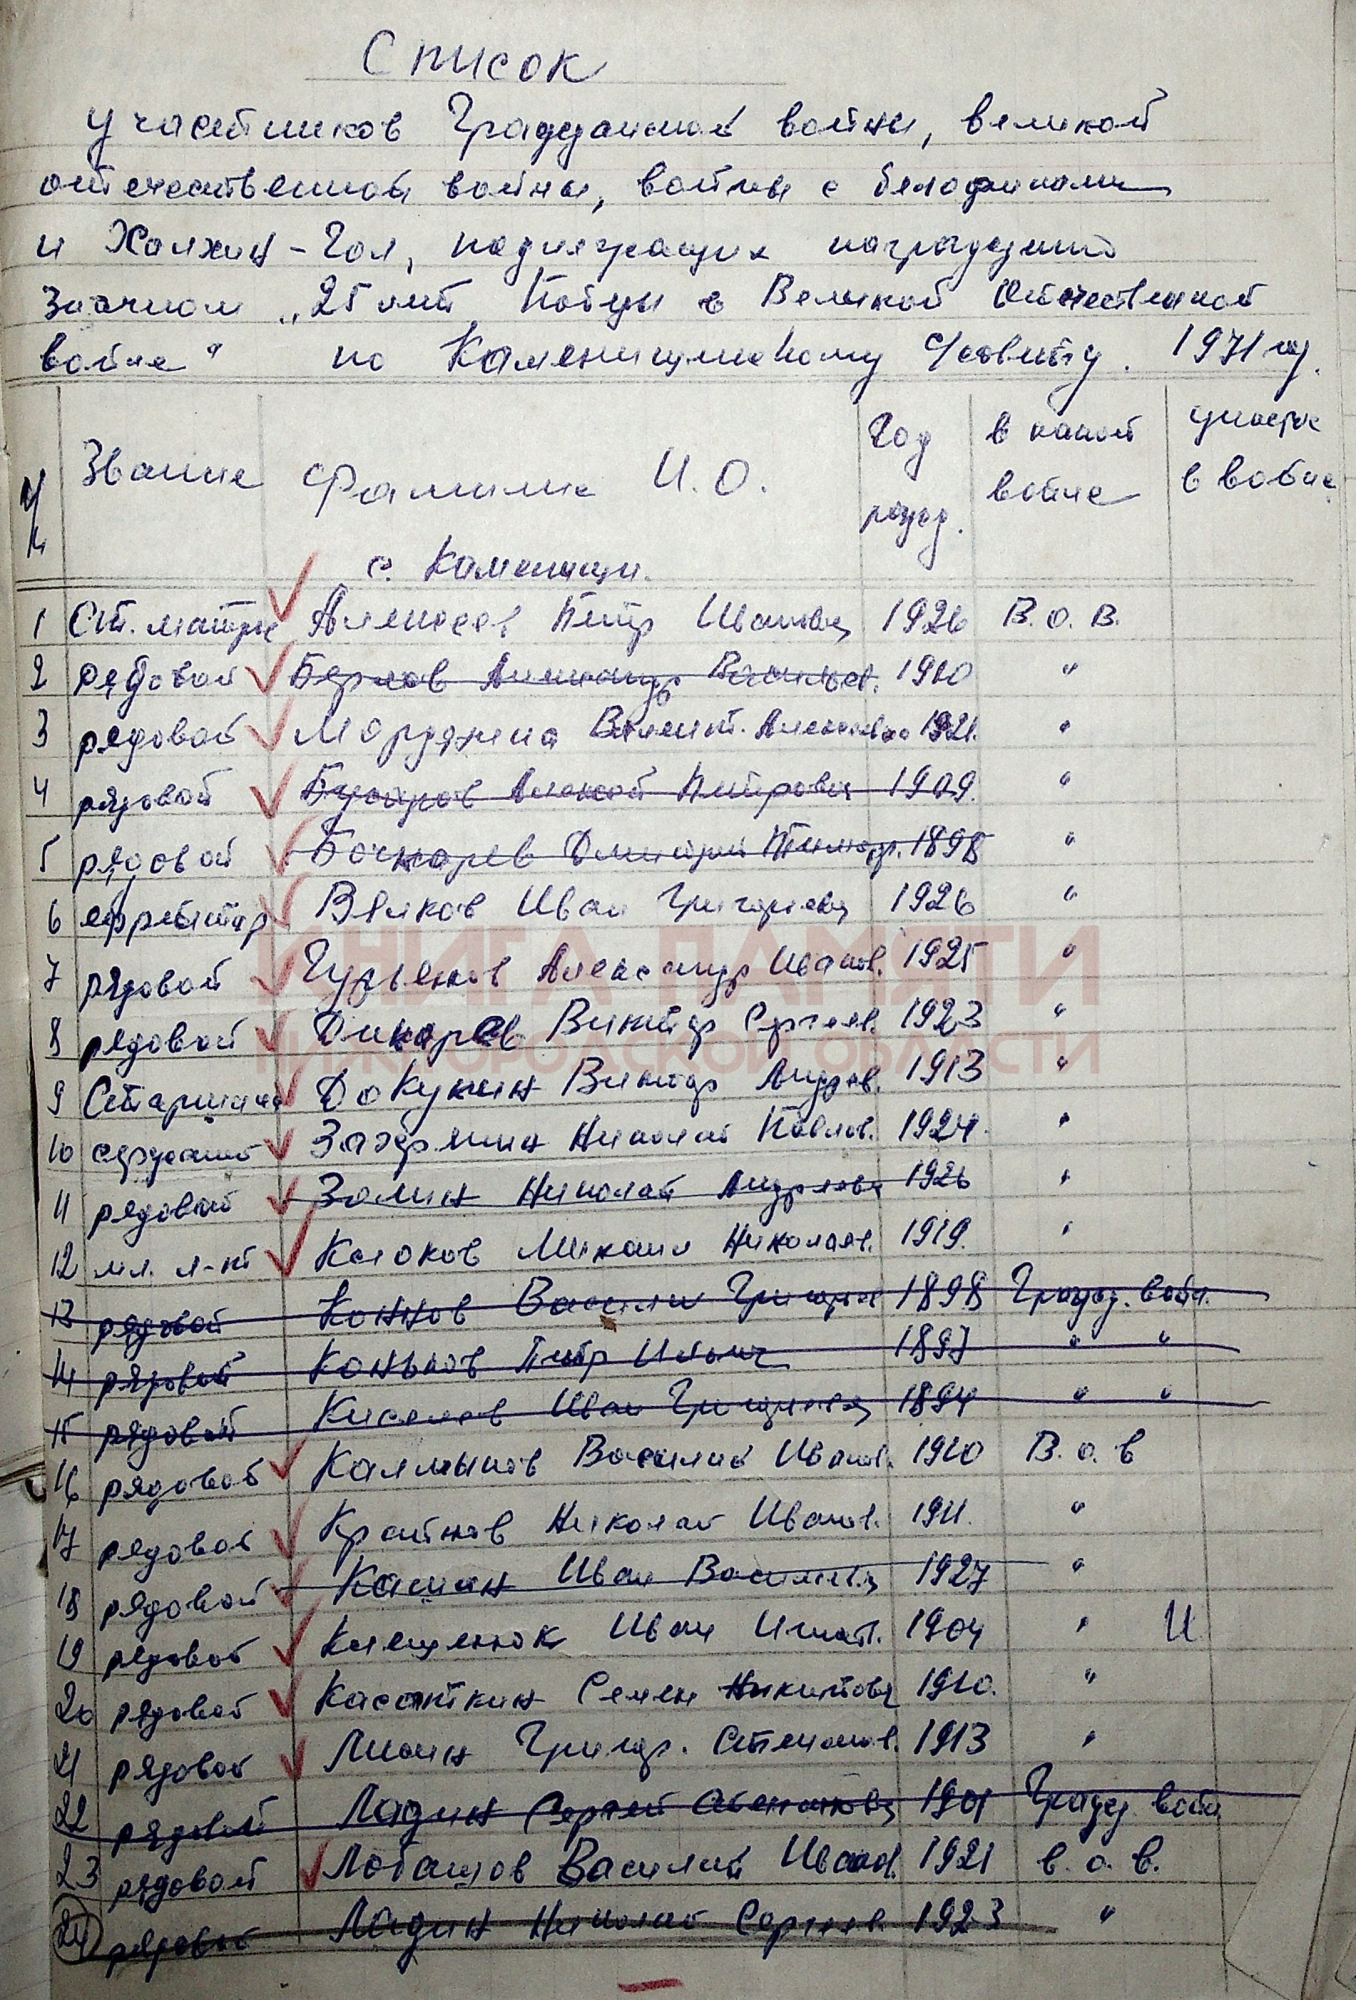 Список
участников Гражданской войны, великой
отечественной войны, войны с белофинами
и Халхин-Гол, подлежащих награждению
Значком „25 лет Победы в Великой Отечественной
войне“ по Каменищинскому с/совету. 1971 год.
Звание Фамилия И.О. Год рожд. в какой войне участие в войне
с. Каменищи.
1 Ст. матрос Алексеев Петр Иванович 1926 В.О.В.
2 рядовой Берлов Александр Васильев. 1910 "
3 рядовой Валент. Алексеевна 1921. "
4 рядовой Алексей Петрович 1909. "
5 рядовой Бочкарев Дмитрий 1898 "
6 ефрейтор Вялков Иван Григорьевич 1926 "
7 рядовой Гурьянов Александр Иванов. 1925 "
8 рядовой Дикарев Виктор Сергеев. 1923 "
9 Старшина Докукин Виктор Андреев. 1913 "
10 сержант Николай Павлов. 1924. "
11 рядовой Залин Николай Андреевич 1926 "
12 мл. л-нт Клоков Михаил Николаев. 1919. "
13 рядовой Коннов Василий Григорьев 1898 Гражд. войн.
14 рядовой Коньков Петр Ильич 1897 " "
15 рядовой Киселев Иван Григорьевич 1894 " "
16 рядовой Калмыков Василий Иванов. 1910 В.о.в
17 рядовой Крайнов Николай Иванов. 1911. "
18 рядовой Касаткин Иван Васильевич 1927 "
19 рядовой Клещенок Иван Игнат. 1904 " И
20 рядовой Касаткин Семен Никитович 1910. "
21 рядовой Григор. Степанов. 1913 "
22 рядовой Ладин Сергей 1901 Гражд. войн
23 рядовой Лобашов Василий Иванов. 1921 в.о.в.
24 рядовой Ладин Николай Сергеев. 1923 "
КНИГА ПАМЯТИ
НИЖЕГОРОДСКОЙ ОБЛАСТИ